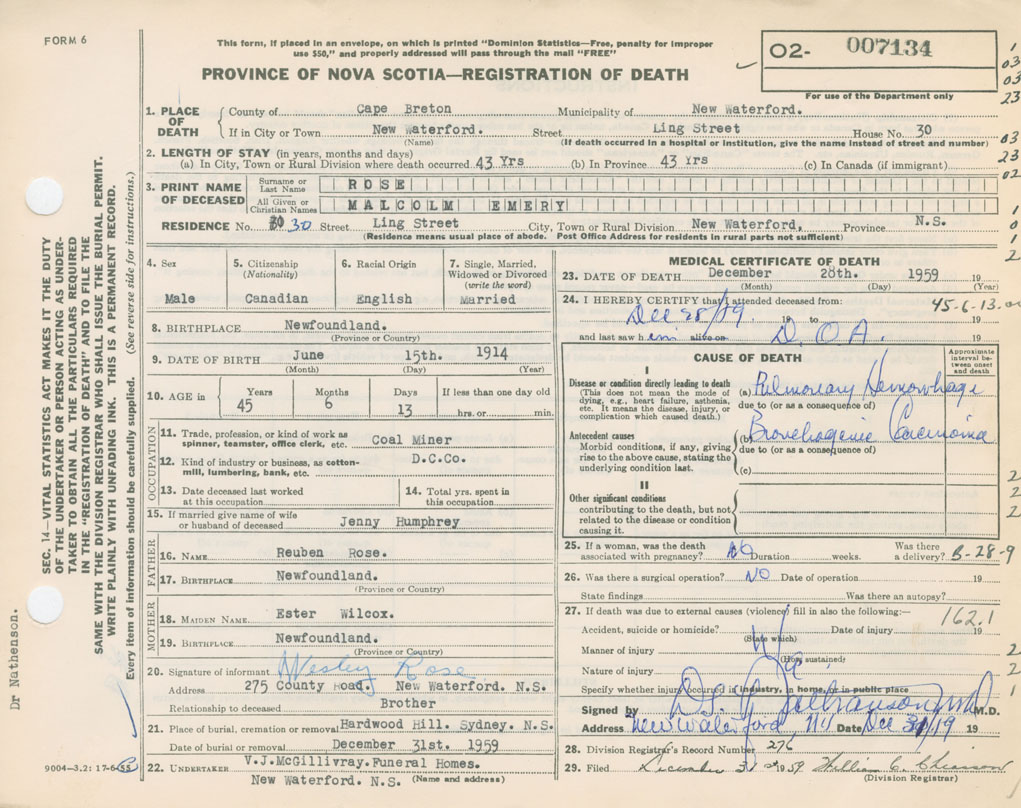 FORM 6
This form, if placed in an envelope, on which is printed "Dominion Statistics—Free, penalty for improper
use $50," and properly addressed will pass through the mail "FREE"
PROVINCE OF NOVA SCOTIA—REGISTRATION OF DEATH
O2- 007134
For use of the Department only
1. PLACE OF DEATH
County of Cape Breton Municipality of New Waterford.
If in City or Town New Waterford. Street Ling Street House No. 30
(Name) (If death occurred in a hospital or institution, give the name instead of street and number)
2. LENGTH OF STAY (in years, months and days)
(a) In City, Town or Rural Division where death occurred 43 Yrs (b) In Province 43 Yrs (c) In Canada (if immigrant)
3. PRINT NAME OF DECEASED
Surname or Last Name ROSE
All Given or Christian Names MALCOLM EMERY
RESIDENCE No. 30 Street Ling Street City, Town or Rural Division New Waterford, Province N.S.
(Residence means usual place of abode. Post Office Address for residents in rural parts not sufficient)
4. Sex Male
5. Citizenship (Nationality) Canadian
6. Racial Origin English
7. Single, Married, Widowed or Divorced (write the word) Married
8. BIRTHPLACE Newfoundland.
(Province or Country)
9. DATE OF BIRTH June 15th. 1914
(Month) (Day) (Year)
10. AGE in Years 45 Months 6 Days 13 If less than one day old hrs. or min.
OCCUPATION
11. Trade, profession, or kind of work as spinner, teamster, office clerk, etc. Coal Miner
12. Kind of industry or business, as cotton-mill, lumbering, bank, etc. D.C.Co.
13. Date deceased last worked at this occupation
14. Total yrs. spent in this occupation
15. If married give name of wife or husband of deceased Jenny Humphrey
FATHER
16. NAME Reuben Rose.
17. BIRTHPLACE Newfoundland.
(Province or Country)
MOTHER
18. MAIDEN NAME Ester Wilcox.
19. BIRTHPLACE Newfoundland.
(Province or Country)
20. Signature of informant Wesley Rose
Address 275 County Road. New Waterford. N.S.
Relationship to deceased Brother
21. Place of burial, cremation or removal Hardwood Hill. Sydney. N.S.
Date of burial or removal December 31st. 1959
22. UNDERTAKER V.J.McGillivray.Funeral Homes.
New Waterford. N.S. (Name and address)
MEDICAL CERTIFICATE OF DEATH
23. DATE OF DEATH December 28th. 1959 19
(Month) (Day) (Year)
24. I HEREBY CERTIFY that I attended deceased from: 45-6-13
Dec 28/59 19 to D.O.A. 19
and last saw him alive on 19
CAUSE OF DEATH
Approximate interval between onset and death
I
Disease or condition directly leading to death
(This does not mean the mode of dying, e.g., heart failure, asthenia, etc. It means the disease, injury, or complication which caused death.)
(a) Pulmonary Hemorrhage
due to (or as a consequence of)
Antecedent causes
Morbid conditions, if any, giving rise to the above cause, stating the underlying condition last.
(b) Bronchogenic Carcinoma
due to (or as a consequence of)
(c)
II
Other significant conditions
contributing to the death, but not related to the disease or condition causing it.
25. If a woman, was the death associated with pregnancy? No Duration weeks. Was there a delivery? B-28-9
26. Was there a surgical operation? NO Date of operation 19
State findings Was there an autopsy?
27. If death was due to external causes (violence) fill in also the following:— 162.1
Accident, suicide or homicide? Date of injury 19
(State which)
Manner of injury
(How sustained)
Nature of injury
Specify whether injury occurred in industry, in home, or in public place
Signed by M.D.
Address New Waterford, NS Date Dec 19
28. Division Registrar's Record Number 276
29. Filed December 31st 1959 William C. Chiasson
(Division Registrar)
SEC. 14—VITAL STATISTICS ACT MAKES IT THE DUTY
OF THE UNDERTAKER OR PERSON ACTING AS UNDER-
TAKER TO OBTAIN ALL THE PARTICULARS REQUIRED
IN THE "REGISTRATION OF DEATH" AND TO FILE THE
SAME WITH THE DIVISION REGISTRAR WHO SHALL ISSUE THE BURIAL PERMIT.
WRITE PLAINLY WITH UNFADING INK. THIS IS A PERMANENT RECORD.
Every item of information should be carefully supplied. (See reverse side for instructions.)
Dr Nathenson.
9004-3.2: 17-6-55
1
03
03
23
03
23
02
1
0
1
2
2
2
2
2
1